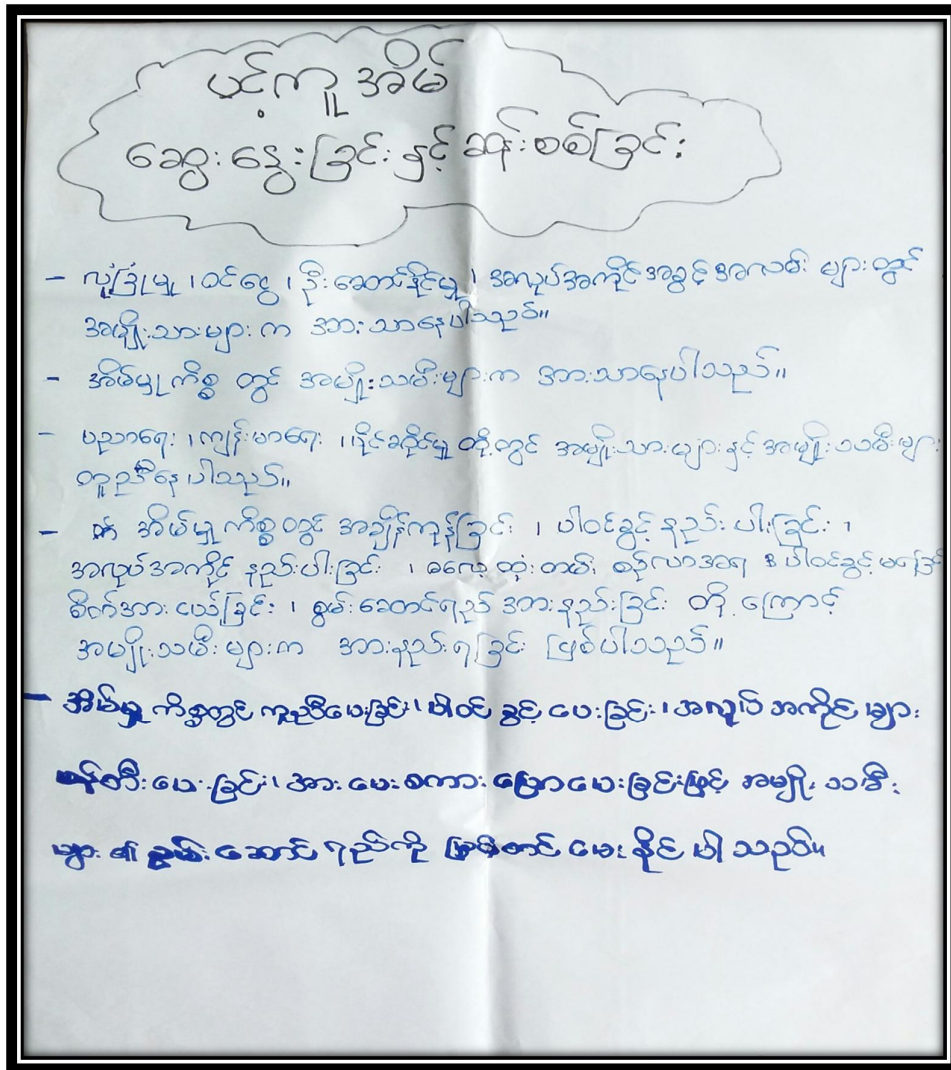 ပင့်ကူအိမ်
ဆွေးနွေးခြင်း နှင့် ဆန်းစစ်ခြင်း
- လုံခြုံမှု ၊ ဝင်ငွေ ၊ ဦးဆောင်နိုင်မှု ၊ အလုပ်အကိုင်အခွင့်အလမ်း များတွင်
အမျိုးသားများ က အားသာနေပါသည်။
- အိမ်မှုကိစ္စ တွင် အမျိုးသမီးများက အားသာနေပါသည်။
- ပညာရေး ၊ ကျန်းမာရေး ၊ ပိုင်ဆိုင်မှု တို့တွင် အမျိုးသားများ နှင့် အမျိုးသမီးများ
တူညီနေပါသည်။
- အိမ်မှုကိစ္စတွင် အချိန်ကုန်ခြင်း ၊ ပါဝင်ခွင့် နည်းပါးခြင်း ၊
အလုပ်အကိုင် နည်းပါးခြင်း ၊ ဓလေ့ထုံးတမ်း စဉ်လာအရ ပါဝင်ခွင့်
စိတ်အားငယ်ခြင်း ၊ စွမ်းဆောင်ရည် အားနည်းခြင်း တို့ ကြောင့်
အမျိုးသမီးများက အားနည်းရခြင်း ဖြစ်ပါသည်။
- အိမ်မှု ကိစ္စတွင် ကူညီပေးခြင်း ၊ ပါဝင် ခွင့် ပေးခြင်း ၊ အလုပ် အကိုင် များ
ဖန်တီး ပေးခြင်း ၊ အားပေးစကား ပြောပေးခြင်းဖြင့် အမျိုး သမီး
များ ၏ စွမ်းဆောင် ရည်ကို မြှင့်တင် ပေး နိုင် ပါ သည်။